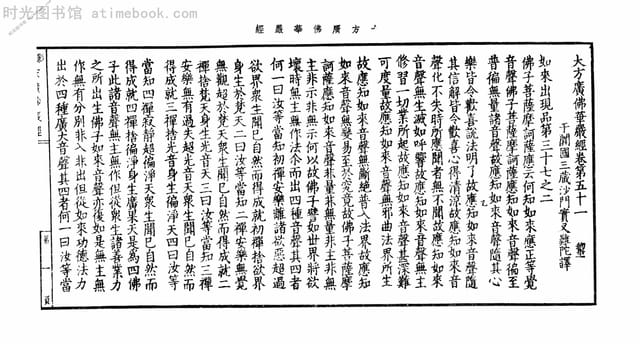 時光圖書館
方廣佛華嚴經
大方廣佛華嚴經卷第五十一
于闐國三藏沙門實叉難陀譯
如來出現品第三十七之二
佛子菩薩摩訶薩應云何知如來應正等覺
音聲佛子菩薩摩訶薩應知如來音聲徧至
普徧無量諸音聲故應知如來音聲隨其心
樂皆令歡喜說法明了故應知如來音聲隨
其信解皆令歡喜心得清涼故應知如來音
聲化不失時所應聞者無不聞故應知如來
音聲無生滅如呼響故應知如來音聲無主
修習一切業所起故應知如來音聲甚深難
可度量故應知如來音聲無邪曲法界所生
故應知如來音聲無斷絕普入法界故應知
如來音聲無變易至於究竟故佛子菩薩摩
訶薩應知如來音聲非量非無量非主非無
主非示非無示何以故佛子譬如世界將欲
壞時無主無作法尒而出四種音聲其四者
何一曰汝等當知初禪安樂離諸欲惡超過
欲界眾生聞已自然而得成就初禪捨欲界
身生於梵天二曰汝等當知二禪安樂無覺
無觀超於梵天眾生聞已自然而得成就二
禪捨梵天身生光音天三曰汝等當知三禪
安樂無有過失超光音天眾生聞已自然而
得成就三禪捨光音身生徧淨天四曰汝等
當知四禪寂靜超徧淨天眾生聞已自然而
得成就四禪捨徧淨身生廣果天是為四佛
子此諸音聲無主無作但從眾生諸善業力
之所出生佛子如來音聲亦復如是無主無
作無有分別非入非出但從如來功德法力
出於四種廣大音聲其四者何一曰汝等當
第一頁